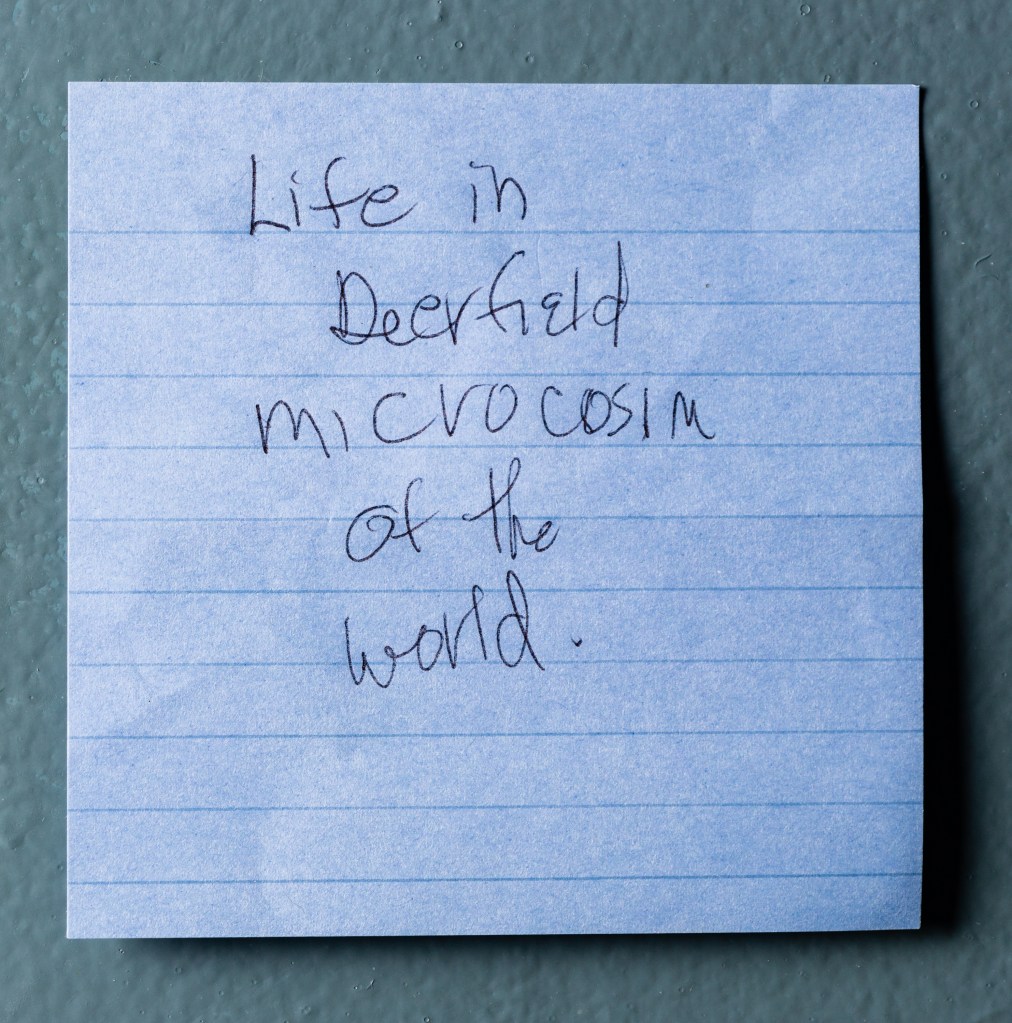 Life in
Deerfield
microcosim
of the
world.